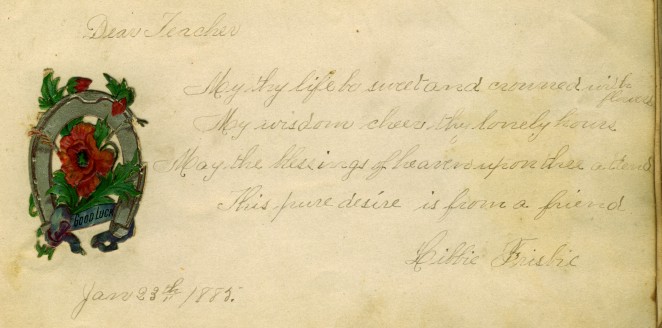 Dear Teacher
May thy life be sweet and crowned with
flowers
May wisdom cheer thy lonely hours
May the blessings of heaven upon thee attend
This pure desire is from a friend
Libbie Frisbie
GOOD LUCK
Jan 23th 1885.